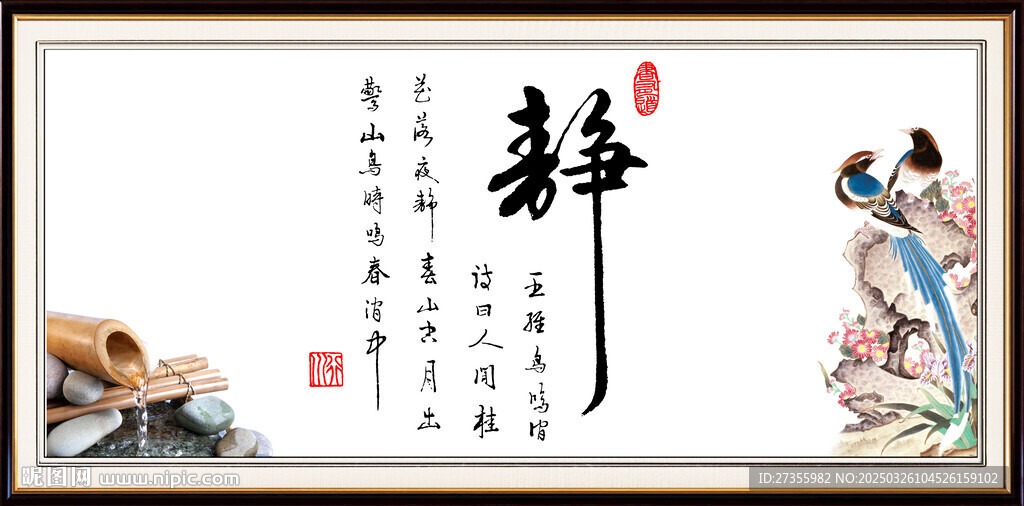 静
王維鳥鳴澗
詩曰人閒桂
花落夜静春山空月出
驚山鳥時鳴春澗中
昵图网 www.nipic.com
ID:27355982 NO:20250326104526159102